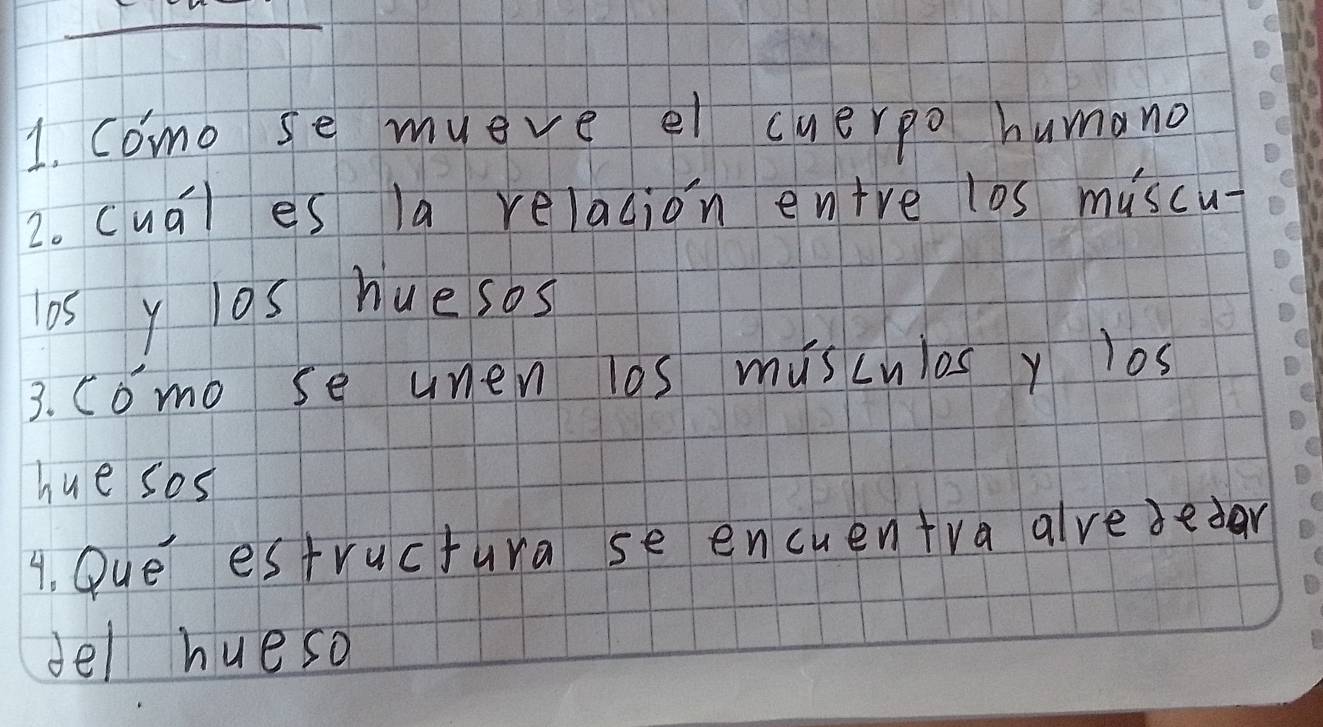 1. Cómo se mueve el cuerpo humano
2. cuál es la relación entre los múscu-
los y los huesos
3. Cómo se unen los músculos y los
huesos
4. Qué estructura se encuentra alrededor
del hueso